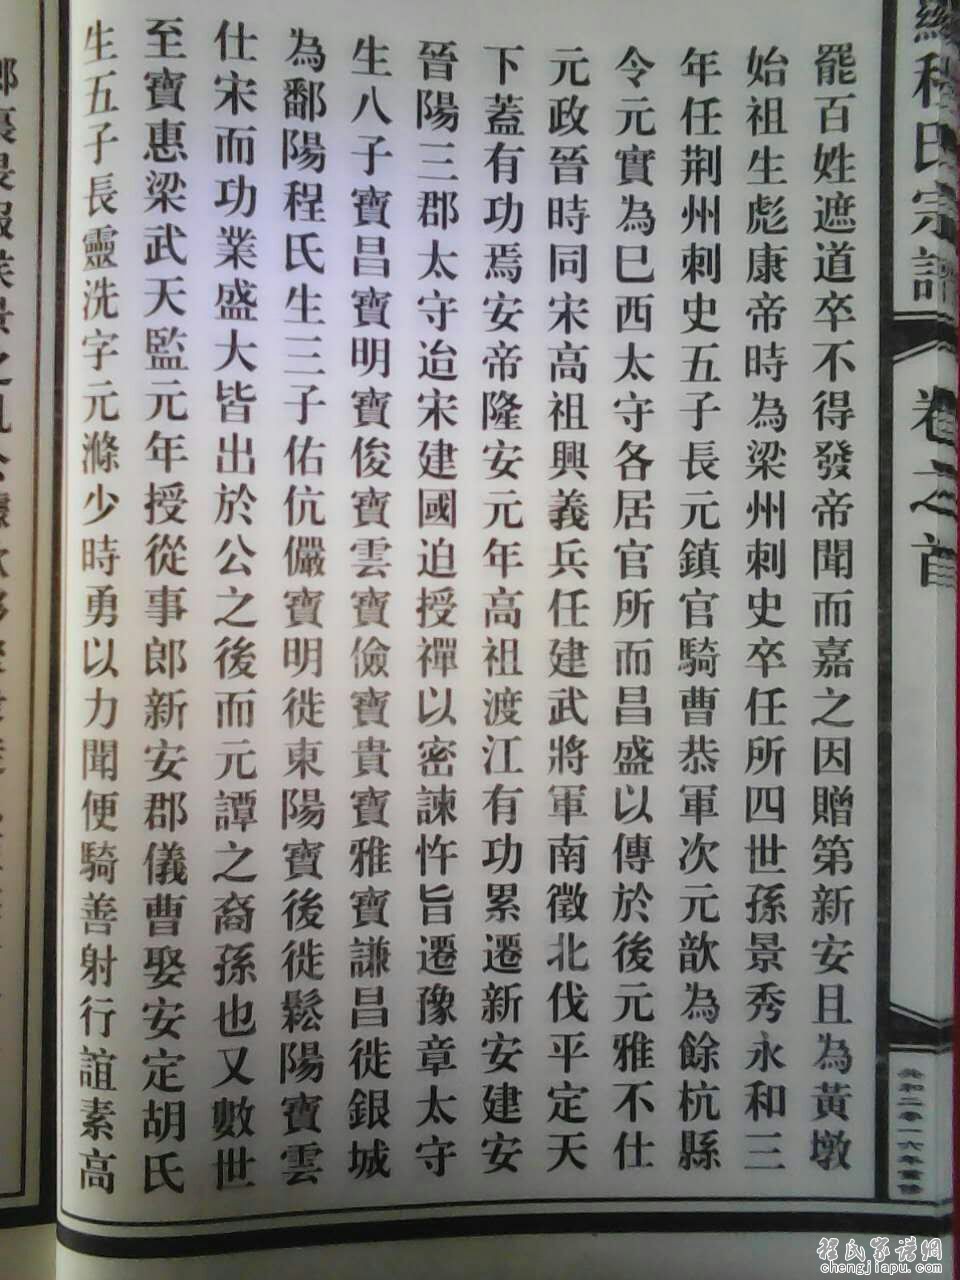 程氏宗譜
卷之首
罷百姓遮道卒不得發帝聞而嘉之因贈第新安且為黃墩
始祖生彪康帝時為梁州刺史卒任所四世孫景秀永和三
年任荆州刺史五子長元鎮官騎曹恭軍次元歆為餘杭縣
令元實為巳西太守各居官所而昌盛以傳於後元雅不仕
元政晉時同宋高祖興義兵任建武將軍南徵北伐平定天
下蓋有功焉安帝隆安元年高祖渡江有功累遷新安建安
晉陽三郡太守迨宋建國迫授禪以密諫忤旨遷豫章太守
生八子寶昌寶明寶俊寶雲寶儉寶貴寶雅寶謙昌徙銀城
為鄱陽程氏生三子佑伉儼寶明徙東陽寶後徙鬆陽寶雲
仕宋而功業盛大皆出於公之後而元譚之裔孫也又數世
至寶惠梁武天監元年授從事郎新安郡儀曹娶安定胡氏
生五子長靈洗字元滌少時勇以力聞便騎善射行誼素高
程氏家譜網
chengjiapu.com